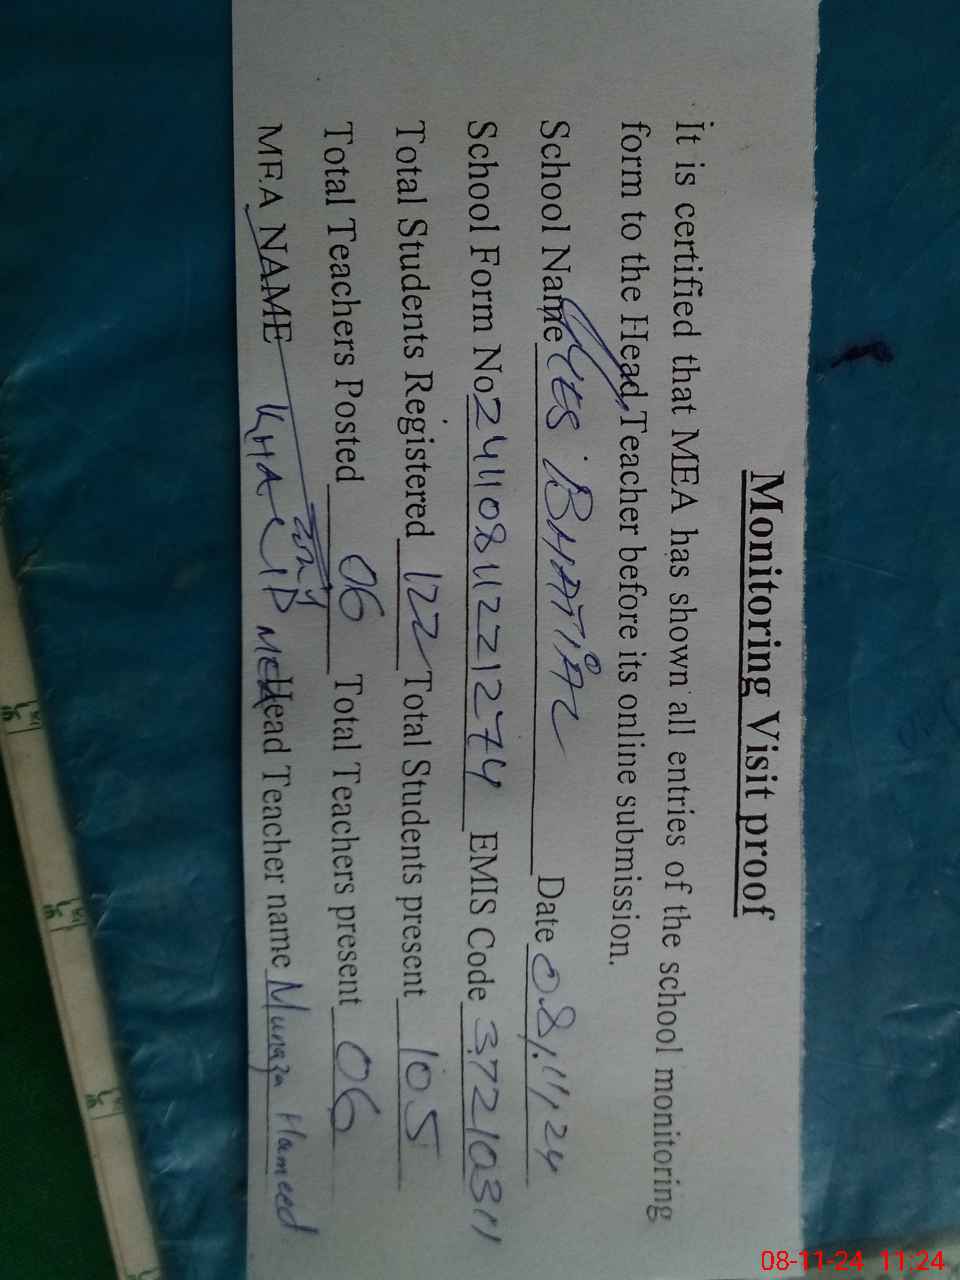 Monitoring Visit proof
It is certified that MEA has shown all entries of the school monitoring
form to the Head Teacher before its online submission.
School Name BHATIAN Date 08.11.24
School Form No 2411081122 1274 EMIS Code 37210311
Total Students Registered 122 Total Students present 105
Total Teachers Posted 06 Total Teachers present 06
MEA NAME KHALID Head Teacher name Munaza Hameed
08-11-24 11:24